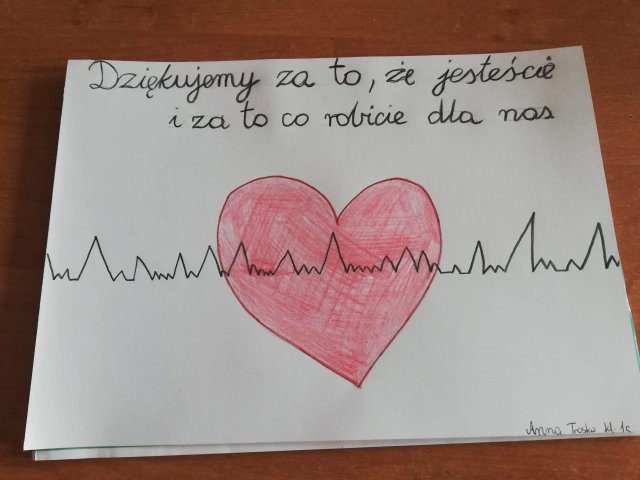 Dziękujemy za to, że jesteście
i za to co robicie dla nas
Anna kl 1c